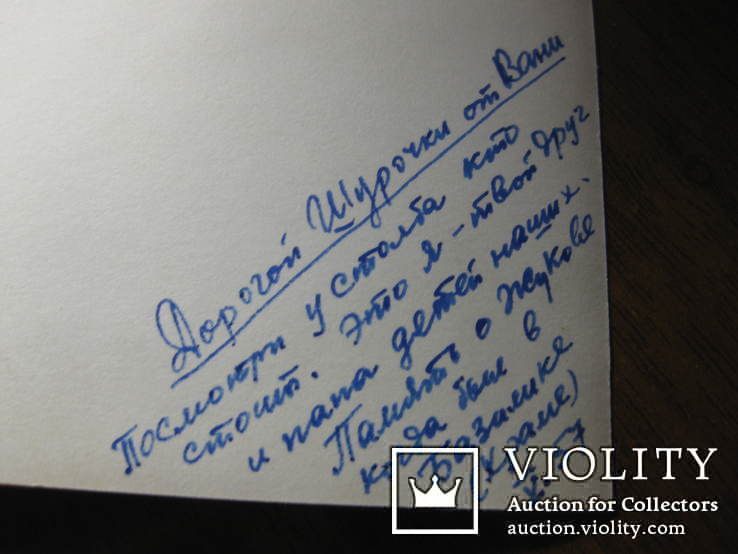 Дорогой Шурочки от Вани
Посмотри у столба кто
стоит. Это я - твой друг
и папа детей наших.
Память о Жукове
когда были в
Базилике
(Храме)
VIOLITY
Auction for Collectors
auction.violity.com